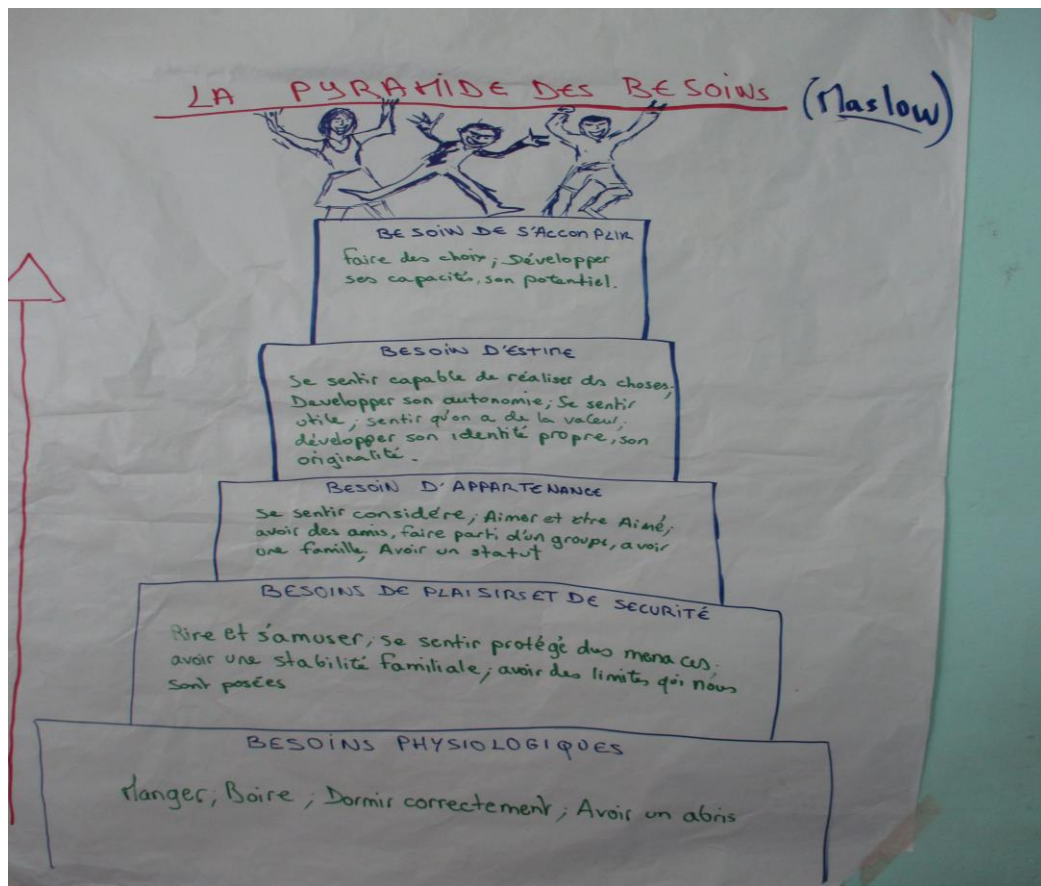 LA PYRAMIDE DES BESOINS (Maslow)
BESOIN DE S'ACCOMPLIR
faire des choix; Développer
ses capacités, son potentiel.
BESOIN D'ESTIME
Se sentir capable de réaliser ds choses;
Developper son autonomie; Se sentir
utile; sentir qu'on a de la valeur;
développer son identité propre, son
originalité.
BESOIN D'APPARTENANCE
Se sentir considéré; Aimer et etre Aimé;
avoir des amis, faire parti d'un groupe, avoir
une famille, Avoir un statut
BESOINS DE PLAISIRS ET DE SECURITÉ
Rire et s'amuser; se sentir protégé des menaces.
avoir une stabilité familiale; avoir des limites qui nous
sont posées
BESOINS PHYSIOLOGIQUES
Manger; Boire; Dormir correctement; Avoir un abris